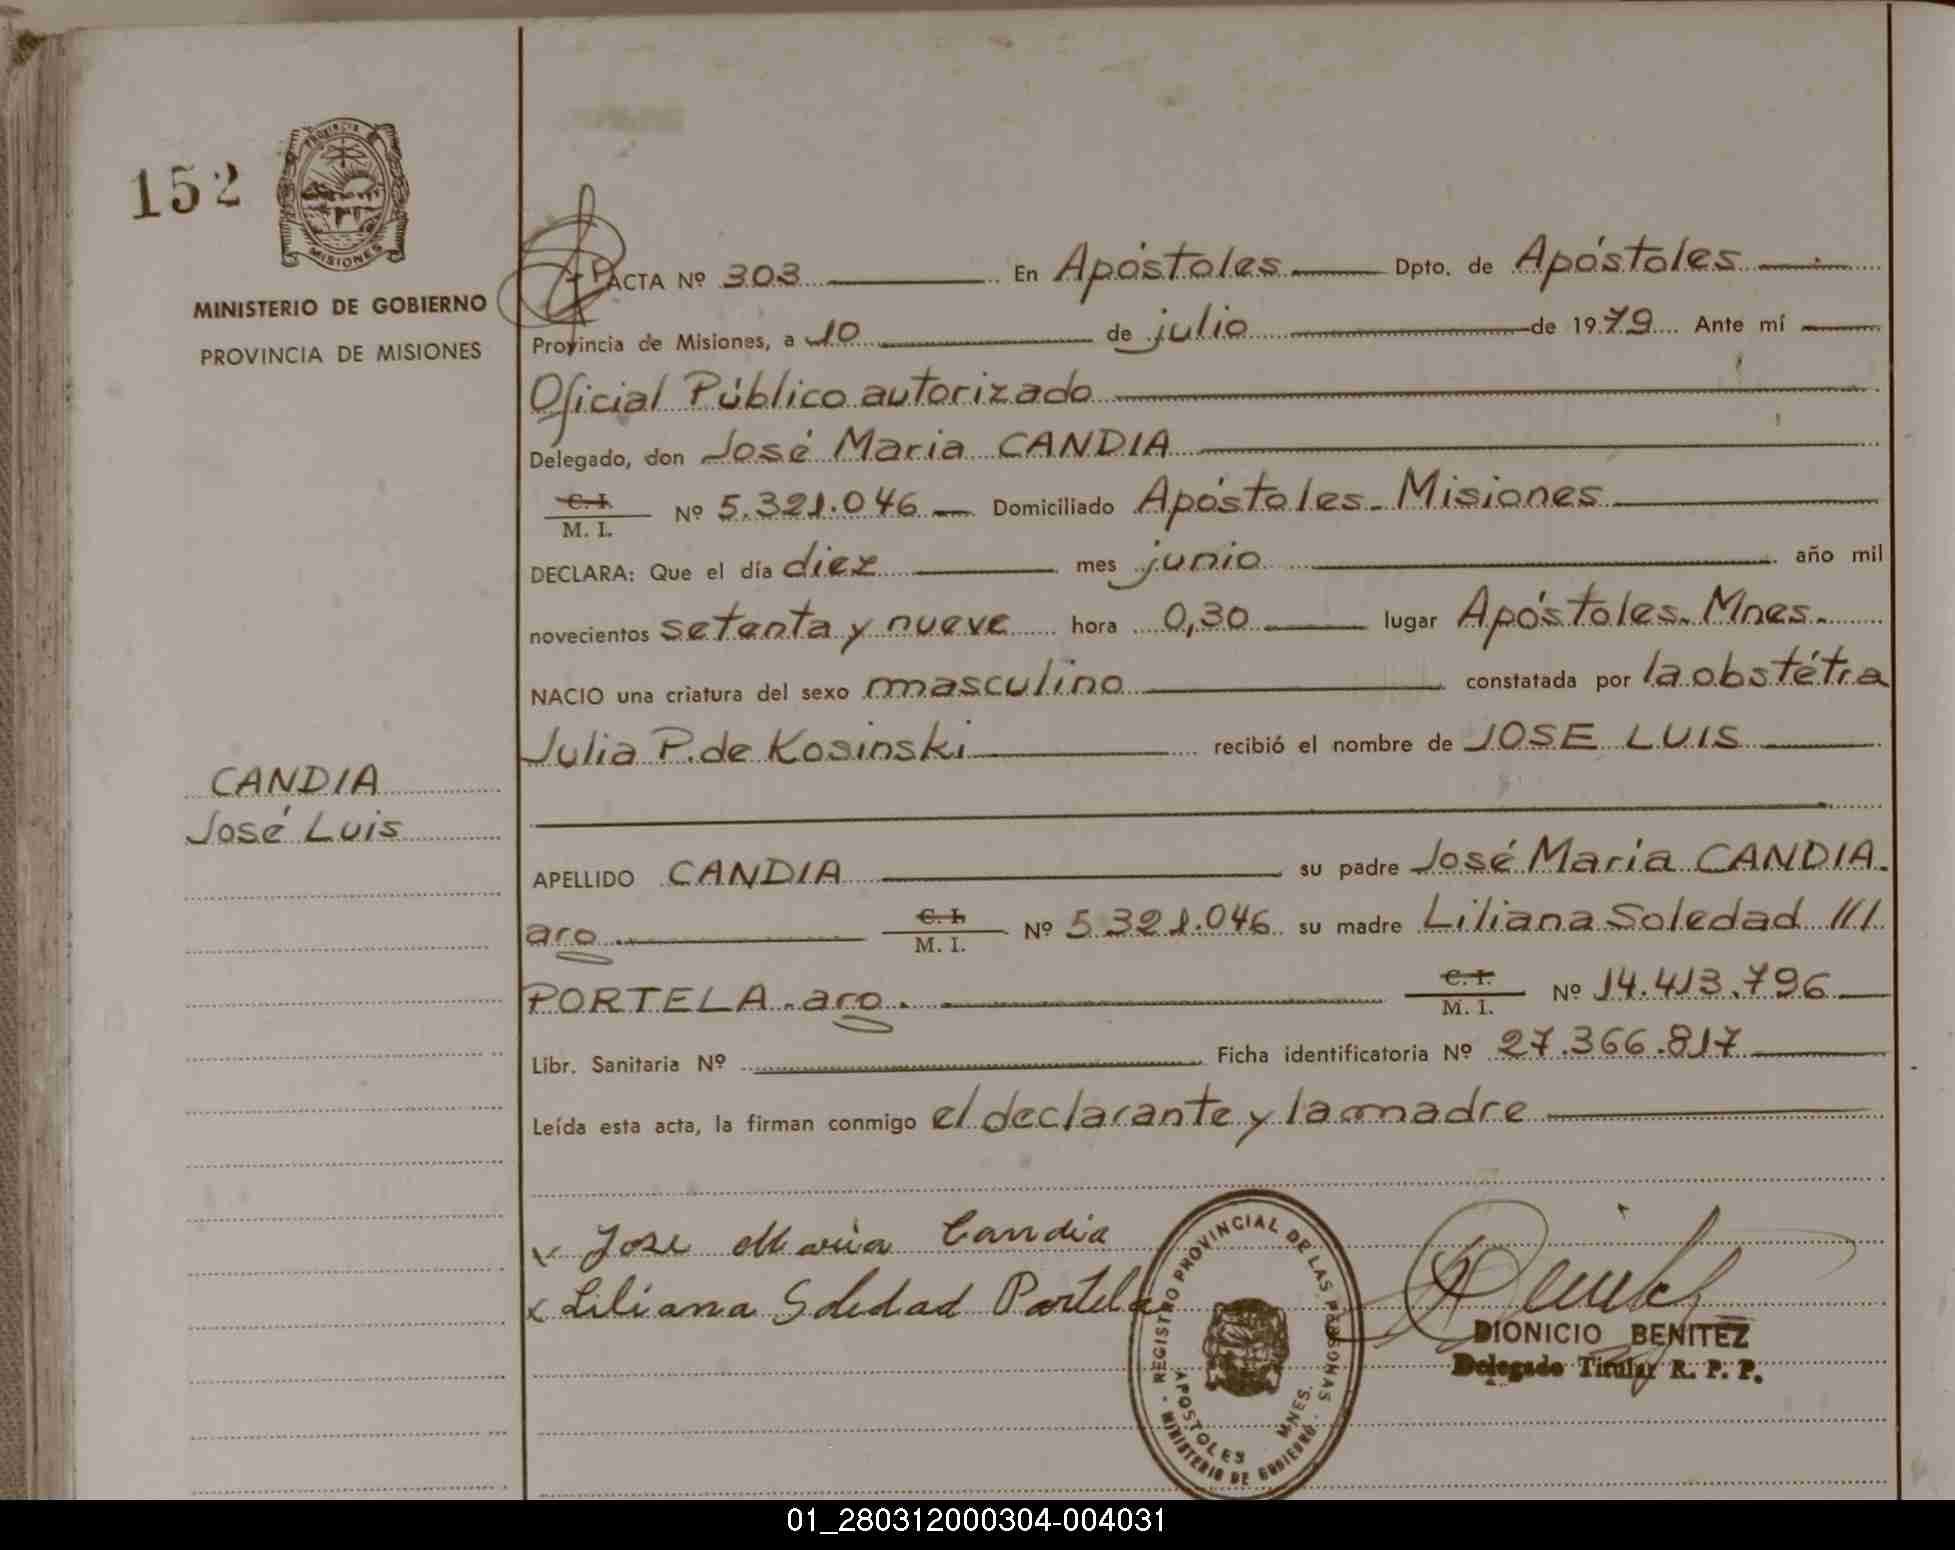 152
PROVINCIA
MISIONES
MINISTERIO DE GOBIERNO
PROVINCIA DE MISIONES
ACTA Nº 303 En Apóstoles Dpto. de Apóstoles
Provincia de Misiones, a 10 de julio de 1979 Ante mí
Oficial Público autorizado
Delegado, don José Maria CANDIA
C. I.
M. I. Nº 5.321.046 Domiciliado Apóstoles - Misiones
DECLARA: Que el día diez mes junio año mil
novecientos setenta y nueve hora 0,30 lugar Apóstoles - Mnes.
NACIO una criatura del sexo masculino constatada por la obstétra
Julia P. de Kosinski recibió el nombre de JOSE LUIS
CANDIA
José Luis
APELLIDO CANDIA su padre José Maria CANDIA.
aro C. I.
M. I. Nº 5.321.046 su madre Liliana Soledad
PORTELA - aro. C. I.
M. I. Nº 14.413.796
Libr. Sanitaria Nº Ficha identificatoria Nº 27.366.817
Leída esta acta, la firman conmigo el declarante y la madre
x Jose Maria Candia
x Liliana Soledad Portela
REGISTRO PROVINCIAL DE LAS PERSONAS
APOSTOLES MNES.
MINISTERIO DE GOBIERNO
DIONICIO BENITEZ
Delegado Titular R. P. P.
01_280312000304-004031